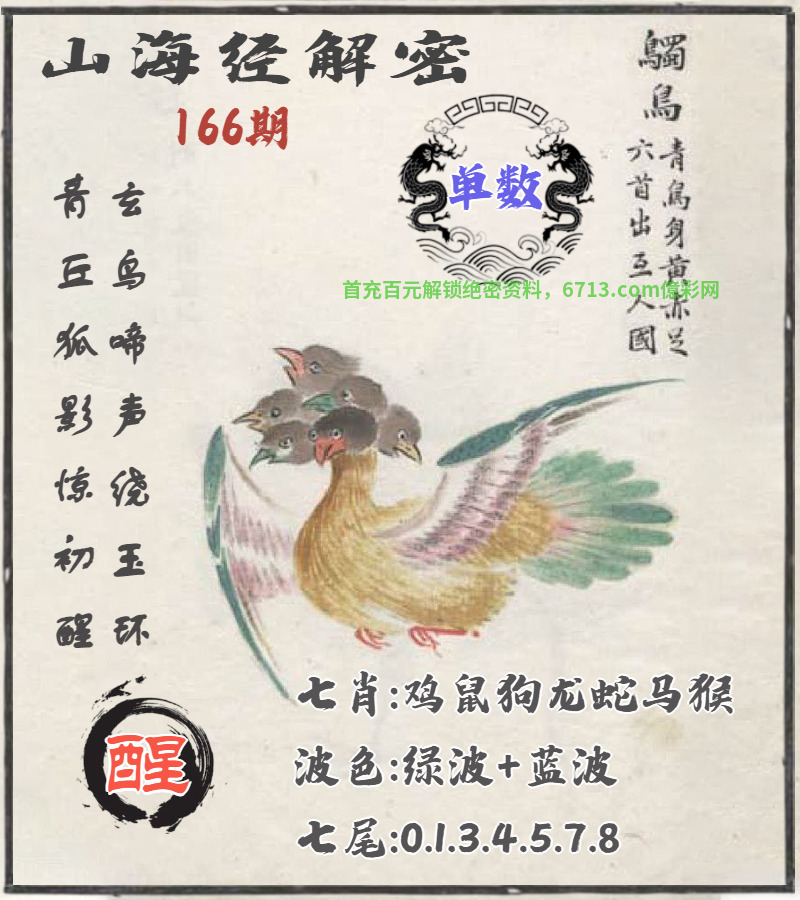 山海经解密
166期
鸀鳥
青鳥身黄赤足
六首出互人國
单数
首充百元解锁绝密资料，6713.com億彩网
玄鸟啼声绕玉环
青丘狐影惊初醒
醒
七肖:鸡鼠狗龙蛇马猴
波色:绿波+蓝波
七尾:0.1.3.4.5.7.8